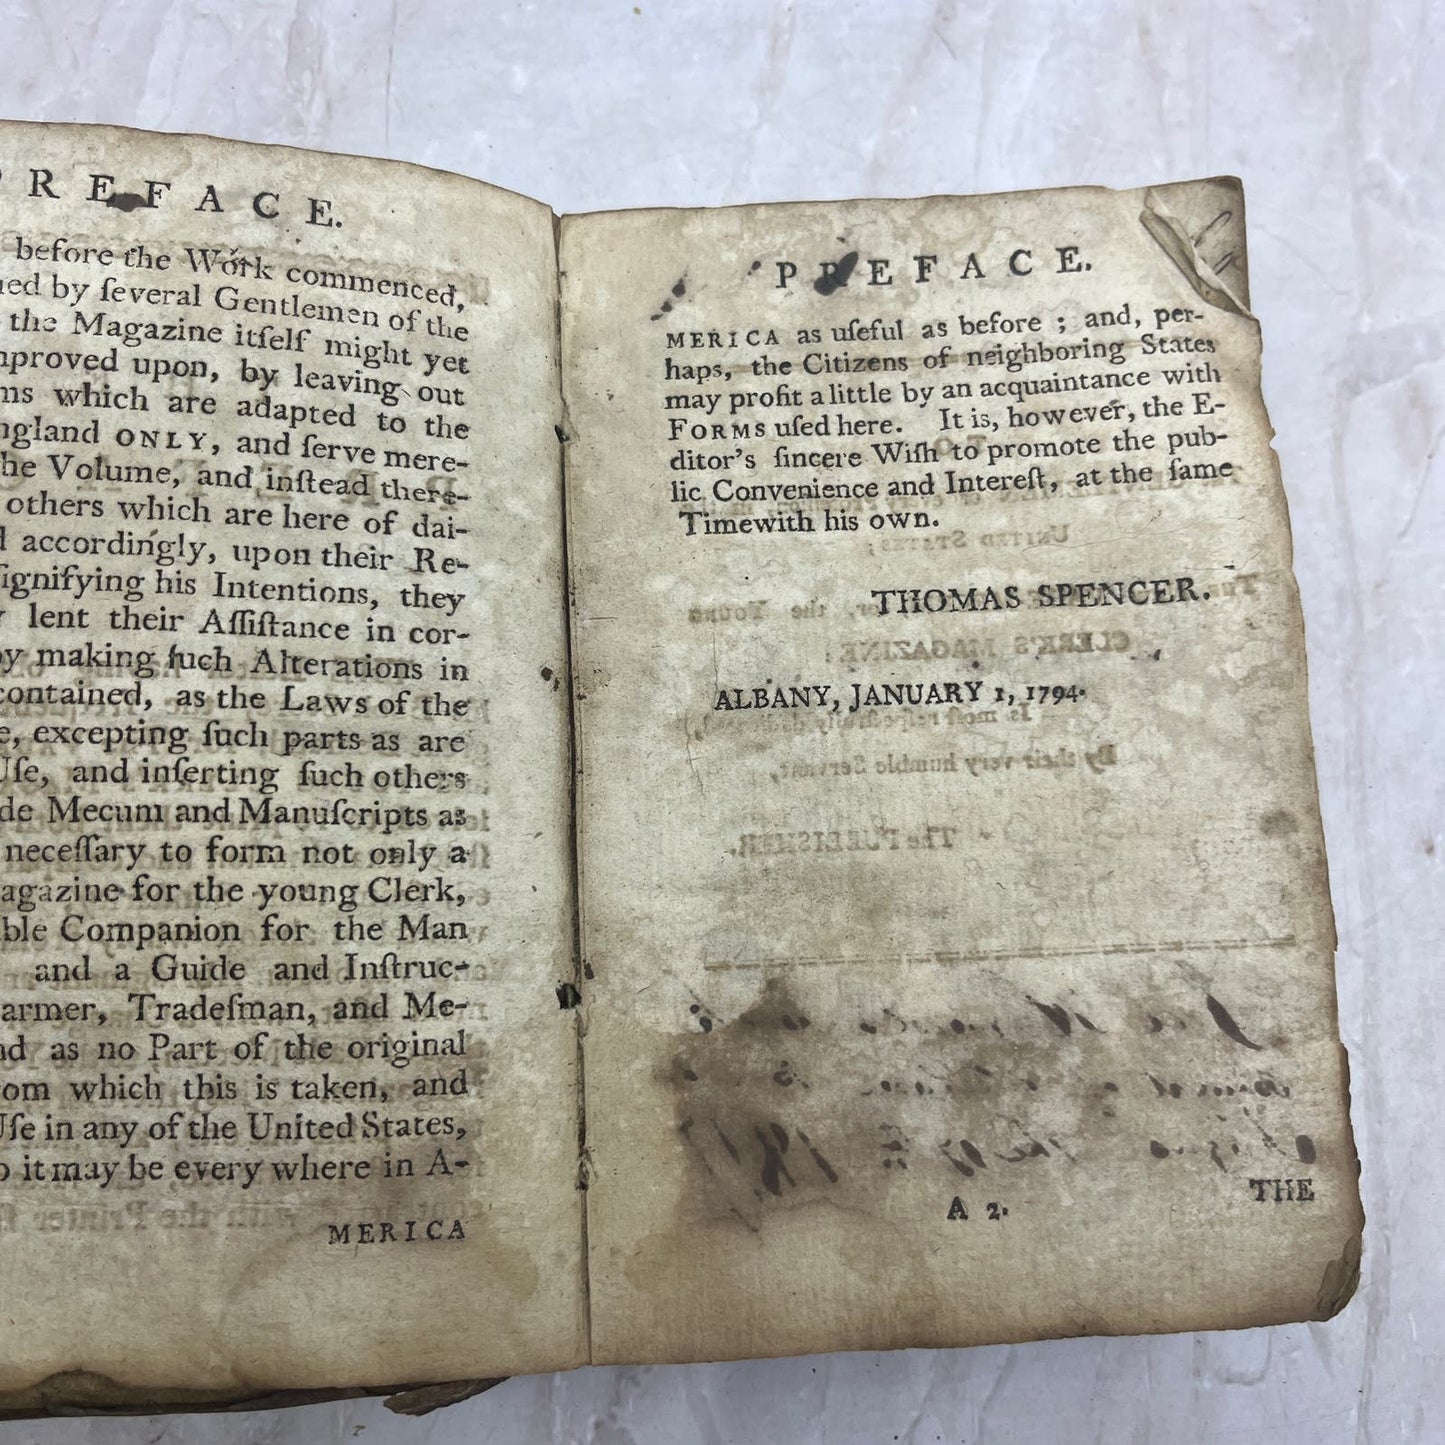 PREFACE.
before the Work commenced,
by ſeveral Gentlemen of the
the Magazine itſelf might yet
upon, by leaving out
which are adapted to the
ONLY, and ſerve mere-
the Volume, and inſtead there-
others which are here of dai-
accordingly, upon their Re-
ſignifying his Intentions, they
lent their Aſſiſtance in cor-
by making ſuch Alterations in
contained, as the Laws of the
excepting ſuch parts as are
Uſe, and inſerting ſuch others
Mecum and Manuſcripts as
neceſſary to form not only a
for the young Clerk,
Companion for the Man
and a Guide and Inſtruc-
Tradeſman, and Me-
as no Part of the original
which this is taken, and
Uſe in any of the United States,
it may be every where in A-
MERICA
PREFACE.
MERICA as uſeful as before ; and, per-
haps, the Citizens of neighboring States
may profit a little by an acquaintance with
FORMS uſed here. It is, however, the E-
ditor's ſincere Wiſh to promote the pub-
lic Convenience and Intereſt, at the ſame
Timewith his own.
THOMAS SPENCER.
ALBANY, JANUARY 1, 1794.
A 2.
THE